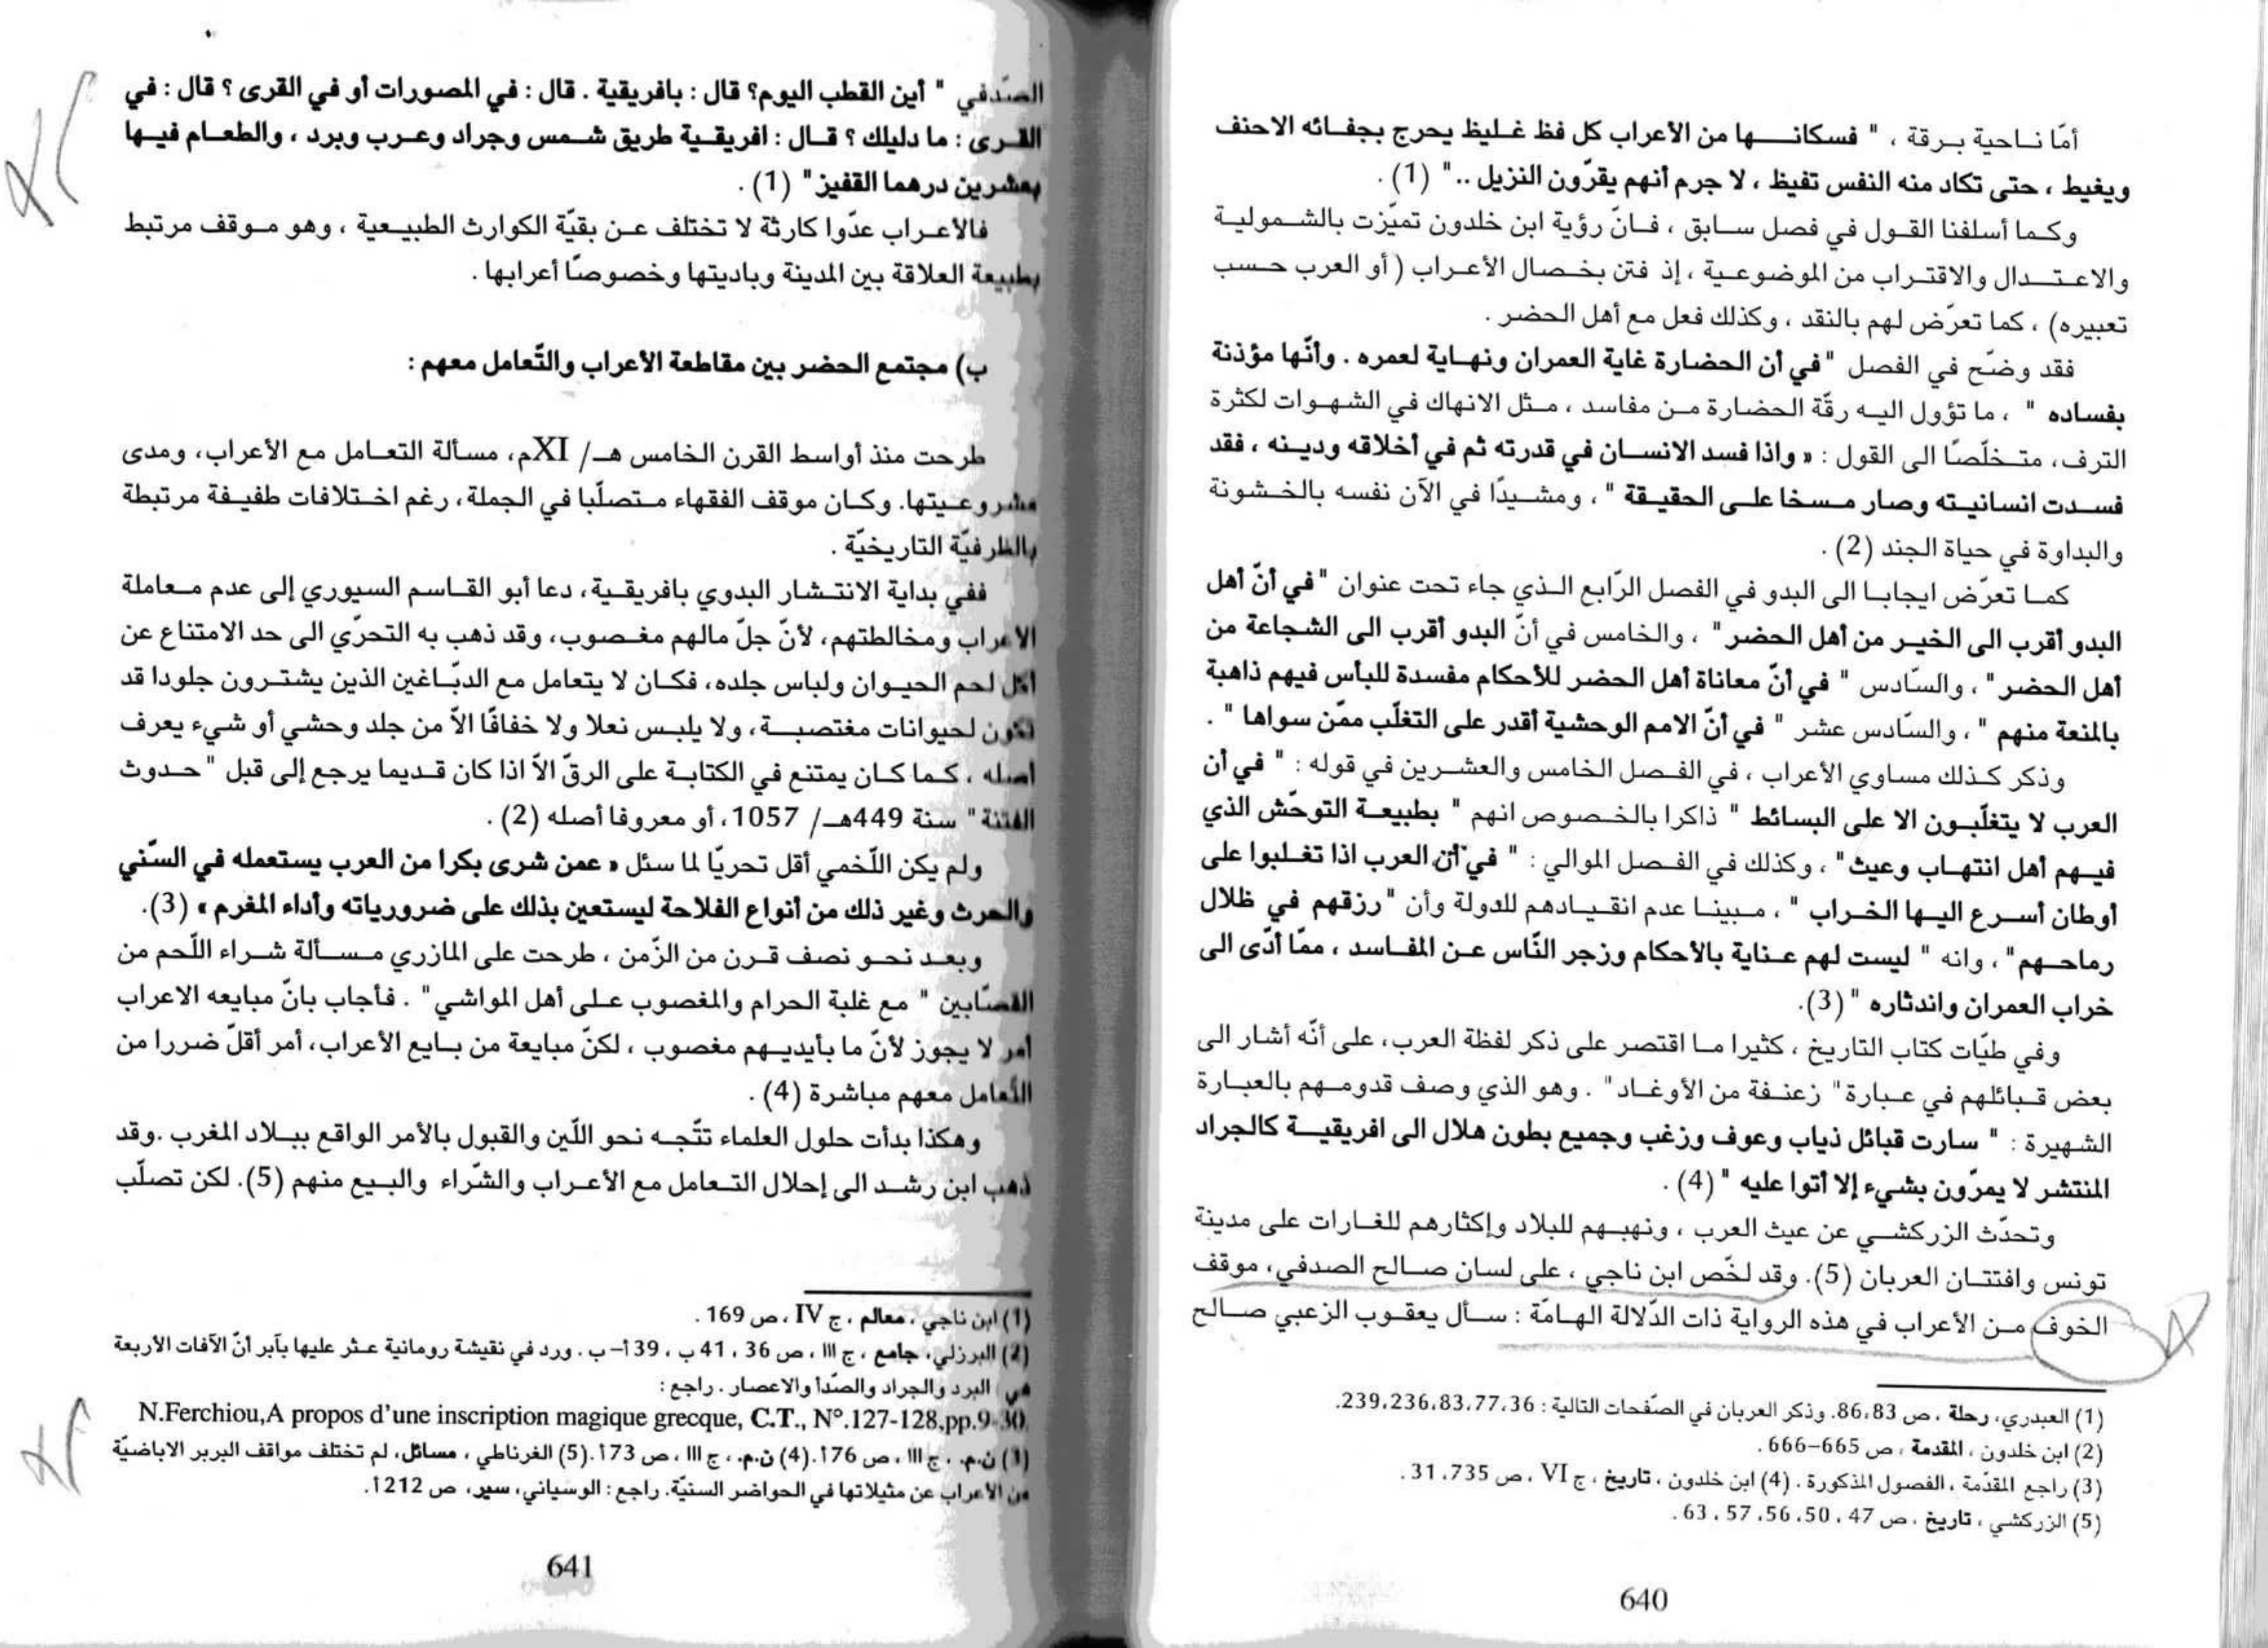 أمّا ناحية برقة ، " فسكانها من الأعراب كل فظ غليظ يحرج بجفائه الاحنف
ويغيط ، حتى تكاد منه النفس تفيظ ، لا جرم أنهم يقرّون النزيل .." (1) .
وكما أسلفنا القول في فصل سابق ، فانّ رؤية ابن خلدون تميّزت بالشمولية
والاعتدال والاقتراب من الموضوعية ، إذ فتن بخصال الأعراب ( أو العرب حسب
تعبيره) ، كما تعرّض لهم بالنقد ، وكذلك فعل مع أهل الحضر .
فقد وضّح في الفصل "في أن الحضارة غاية العمران ونهاية لعمره . وأنّها مؤذنة
بفساده " ، ما تؤول اليه رقّة الحضارة من مفاسد ، مثل الانهاك في الشهوات لكثرة
الترف، متخلّصًا الى القول : « واذا فسد الانسان في قدرته ثم في أخلاقه ودينه ، فقد
فسدت انسانيته وصار مسخا على الحقيقة " ، ومشيدًا في الآن نفسه بالخشونة
والبداوة في حياة الجند (2) .
كما تعرّض ايجابا الى البدو في الفصل الرّابع الذي جاء تحت عنوان "في أنّ أهل
البدو أقرب الى الخير من أهل الحضر" ، والخامس في أنّ البدو أقرب الى الشجاعة من
أهل الحضر" ، والسّادس " في أنّ معاناة أهل الحضر للأحكام مفسدة للبأس فيهم ذاهبة
بالمنعة منهم " ، والسّادس عشر " في أنّ الامم الوحشية أقدر على التغلّب ممّن سواها " .
وذكر كذلك مساوي الأعراب ، في الفصل الخامس والعشرين في قوله : " في أن
العرب لا يتغلّبون الا على البسائط " ذاكرا بالخصوص انهم " بطبيعة التوحّش الذي
فيهم أهل انتهاب وعيث" ، وكذلك في الفصل الموالي : " في أن العرب اذا تغلبوا على
أوطان أسرع اليها الخراب " ، مبينا عدم انقيادهم للدولة وأن "رزقهم في ظلال
رماحهم" ، وانه " ليست لهم عناية بالأحكام وزجر النّاس عن المفاسد ، ممّا أدّى الى
خراب العمران واندثاره " (3).
وفي طيّات كتاب التاريخ ، كثيرا ما اقتصر على ذكر لفظة العرب، على أنّه أشار الى
بعض قبائلهم في عبارة" زعنفة من الأوغاد" . وهو الذي وصف قدومهم بالعبارة
الشهيرة : " سارت قبائل ذياب وعوف وزغب وجميع بطون هلال الى افريقية كالجراد
المنتشر لا يمرّون بشيء إلا أتوا عليه " (4) .
وتحدّث الزركشي عن عيث العرب ، ونهبهم للبلاد وإكثارهم للغارات على مدينة
تونس وافتتان العربان (5). وقد لخّص ابن ناجي ، على لسان صالح الصدفي، موقف
الخوف من الأعراب في هذه الرواية ذات الدّلالة الهامّة : سأل يعقوب الزعبي صالح
(1) العبدري، رحلة ، ص 86،83. وذكر العربان في الصّفحات التالية : 239،236،83،77،36.
(2) ابن خلدون ، المقدمة ، ص 665–666 .
(3) راجع المقدّمة ، الفصول المذكورة . (4) ابن خلدون ، تاريخ ، ج VI ، ص 31،735 .
(5) الزركشي ، تاريخ ، ص 47 ، 50 ،56 ،57 ،63 .
640
الصّدفي " أين القطب اليوم؟ قال : بافريقية . قال : في المصورات أو في القرى ؟ قال : في
القرى : ما دليلك ؟ قال : افريقية طريق شمس وجراد وعرب وبرد ، والطعام فيها
بعشرين درهما القفيز" (1) .
فالأعراب عدّوا كارثة لا تختلف عن بقيّة الكوارث الطبيعية ، وهو موقف مرتبط
بطبيعة العلاقة بين المدينة وباديتها وخصوصًا أعرابها .
ب) مجتمع الحضر بين مقاطعة الأعراب والتّعامل معهم :
طرحت منذ أواسط القرن الخامس هـ/ XIم، مسألة التعامل مع الأعراب، ومدى
مشروعيتها. وكان موقف الفقهاء متصلّبا في الجملة، رغم اختلافات طفيفة مرتبطة
بالظرفيّة التاريخيّة .
ففي بداية الانتشار البدوي بافريقية، دعا أبو القاسم السيوري إلى عدم معاملة
الاعراب ومخالطتهم، لأنّ جلّ مالهم مغصوب، وقد ذهب به التحرّي الى حد الامتناع عن
أكل لحم الحيوان ولباس جلده، فكان لا يتعامل مع الدبّاغين الذين يشترون جلودا قد
تكون لحيوانات مغتصبة، ولا يلبس نعلا ولا خفافًا الاّ من جلد وحشي أو شيء يعرف
أصله ، كما كان يمتنع في الكتابة على الرقّ الاّ اذا كان قديما يرجع إلى قبل " حدوث
الفتنة" سنة 449هـ/ 1057، أو معروفا أصله (2) .
ولم يكن اللّخمي أقل تحريّا لما سئل « عمن شرى بكرا من العرب يستعمله في السّني
والحرث وغير ذلك من أنواع الفلاحة ليستعين بذلك على ضرورياته وأداء المغرم » (3).
وبعد نحو نصف قرن من الزّمن ، طرحت على المازري مسألة شراء اللّحم من
القصّابين " مع غلبة الحرام والمغصوب على أهل المواشي" . فأجاب بانّ مبايعه الاعراب
أمر لا يجوز لأنّ ما بأيديهم مغصوب ، لكنّ مبايعة من بايع الأعراب، أمر أقلّ ضررا من
التّعامل معهم مباشرة (4) .
وهكذا بدأت حلول العلماء تتّجه نحو اللّين والقبول بالأمر الواقع ببلاد المغرب .وقد
ذهب ابن رشد الى إحلال التعامل مع الأعراب والشّراء والبيع منهم (5). لكن تصلّب
(1) ابن ناجي ، معالم ، ج IV ، ص 169 .
(2) البرزلي، جامع ، ج III ، ص 36 ، 41 ب ، 39 أ– ب . ورد في نقيشة رومانية عثر عليها بآبر أنّ الآفات الأربعة
هي البرد والجراد والصّدأ والاعصار . راجع :
N.Ferchiou,A propos d'une inscription magique grecque, C.T., N°.127-128,pp.9-30.
(3) ن.م. ، ج III ، ص 176أ. (4) ن.م. ، ج III ، ص 173أ. (5) الغرناطي ، مسائل، لم تختلف مواقف البربر الاباضيّة
من الأعراب عن مثيلاتها في الحواضر السنيّة. راجع : الوسياني، سير، ص 212أ.
641